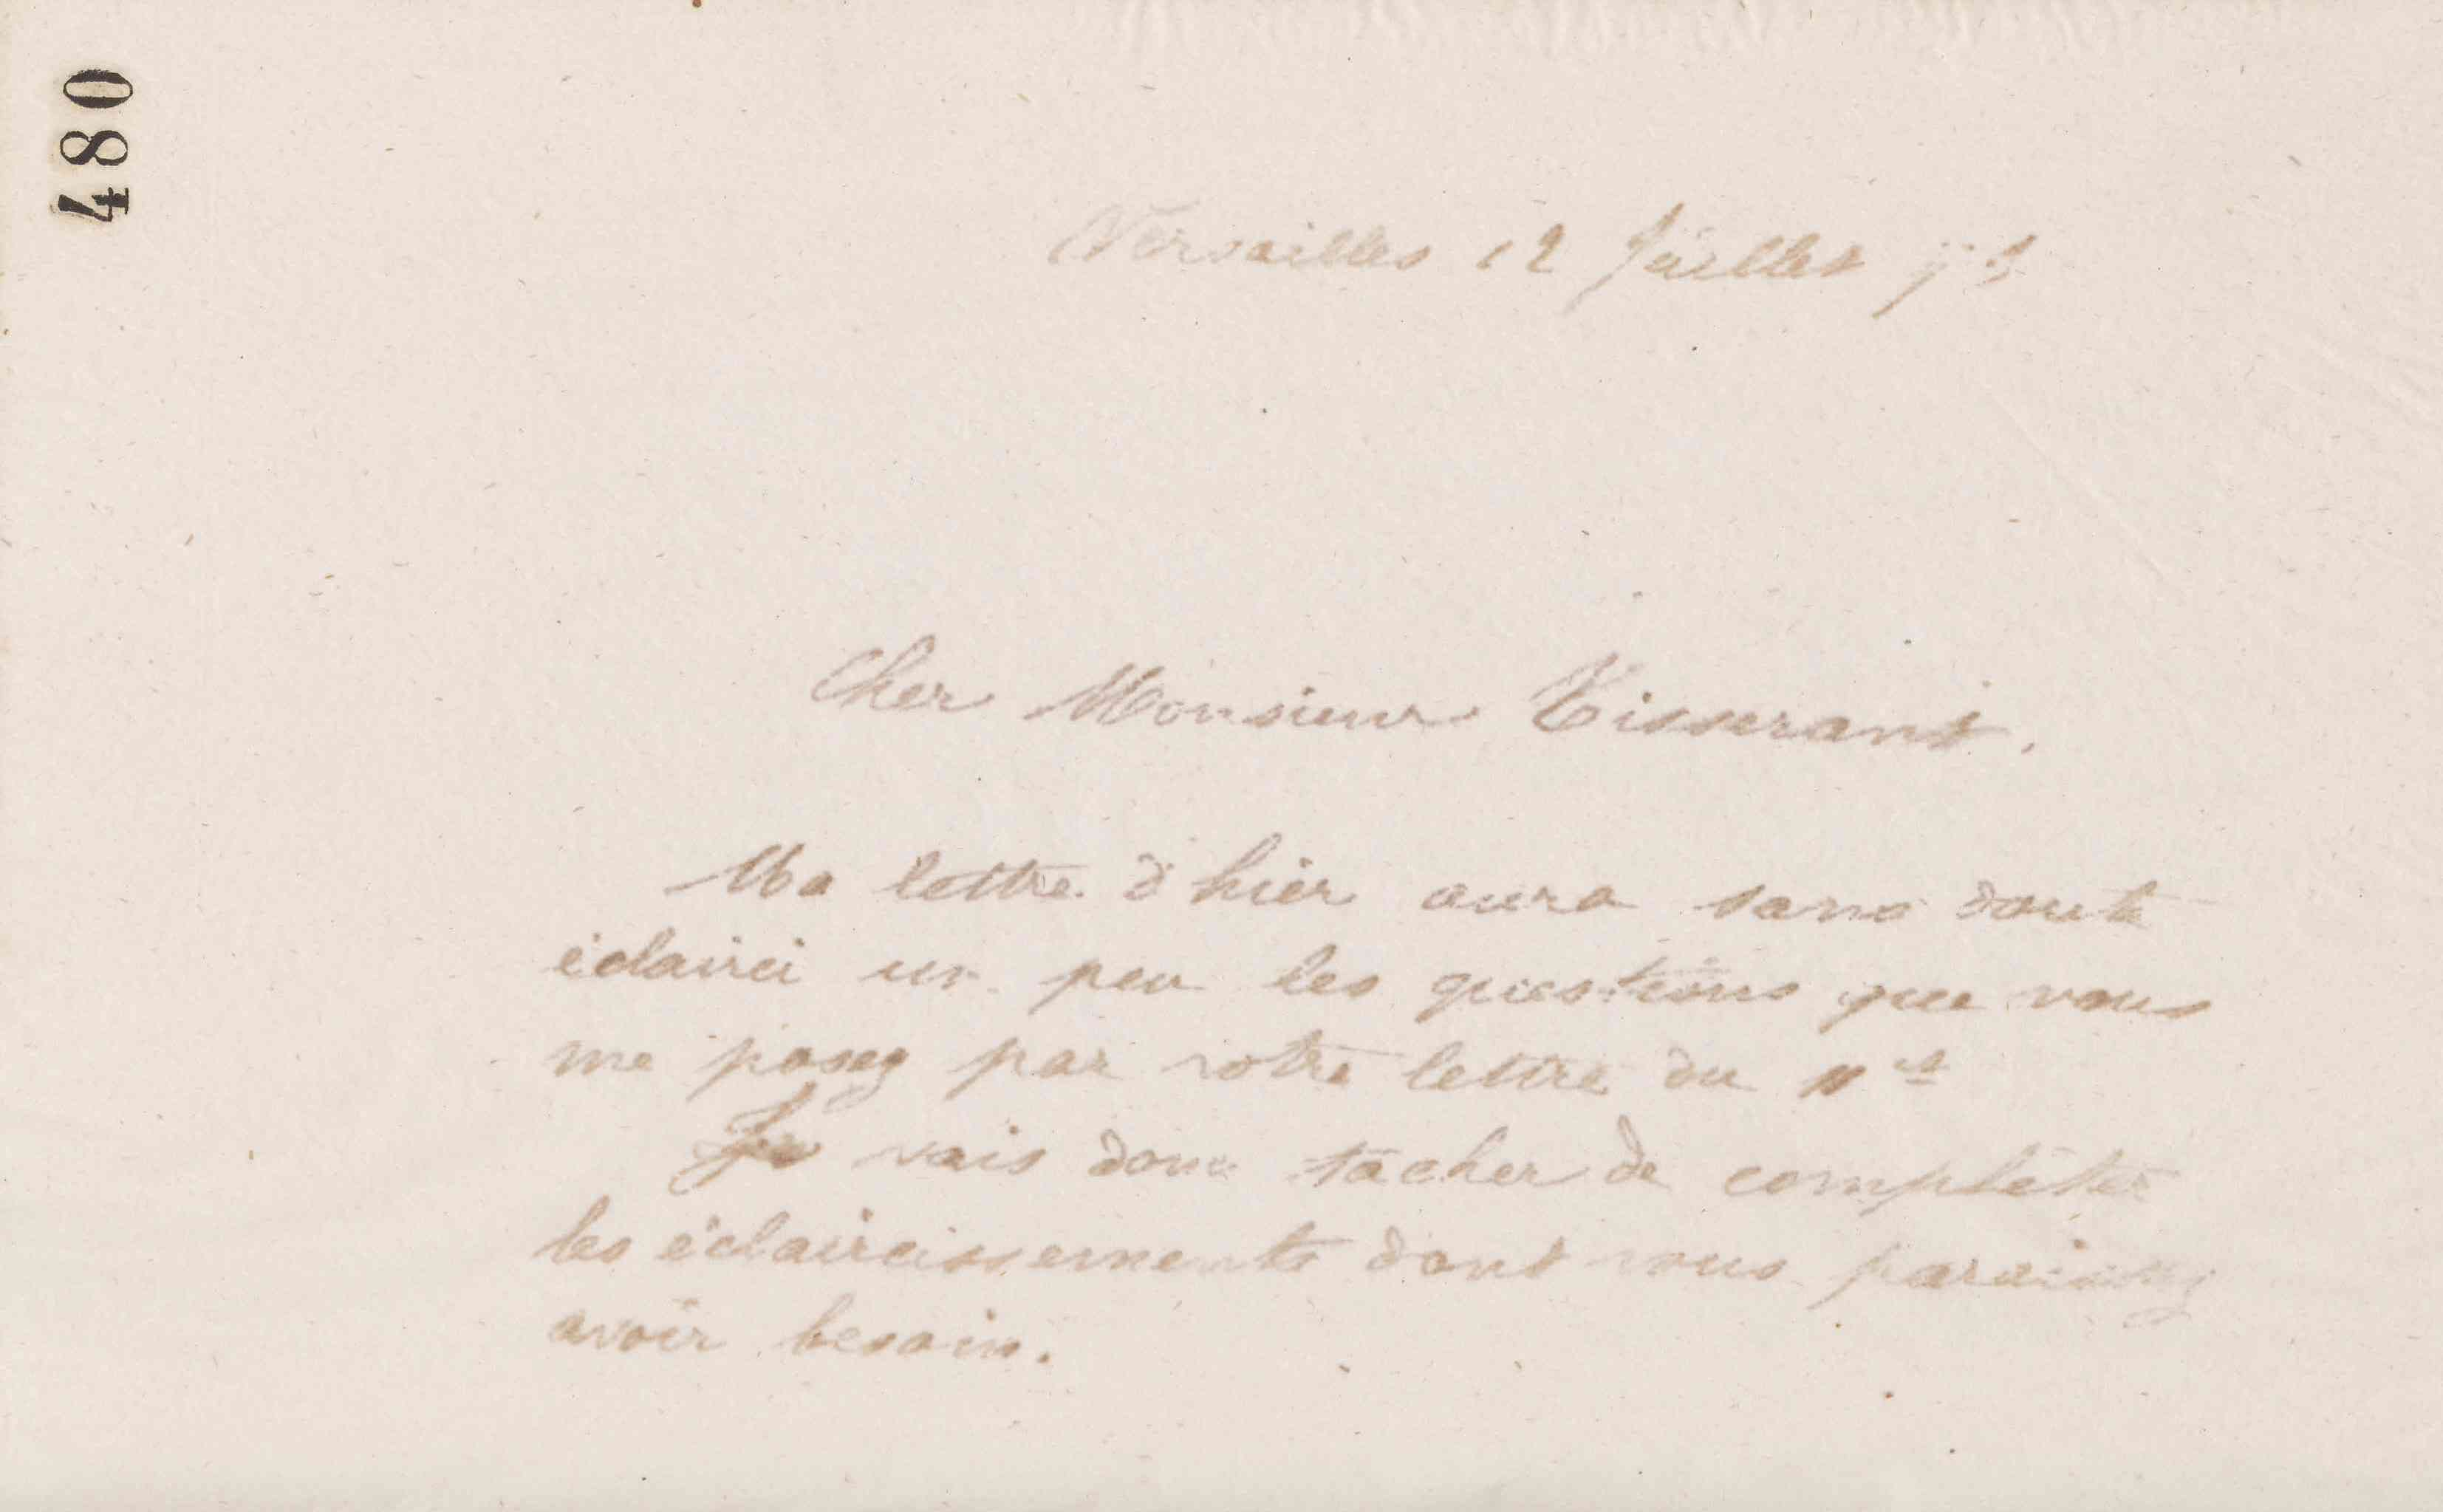 480
Versailles 12 Juillet
Cher Monsieur Tisserant.
Ma lettre d'hier aura sans doute
éclairci un peu les questions que vous
me posez par votre lettre du 11 ct
Je vais donc tâcher de compléter
les éclaircissements dont vous paraissez
avoir besoin.